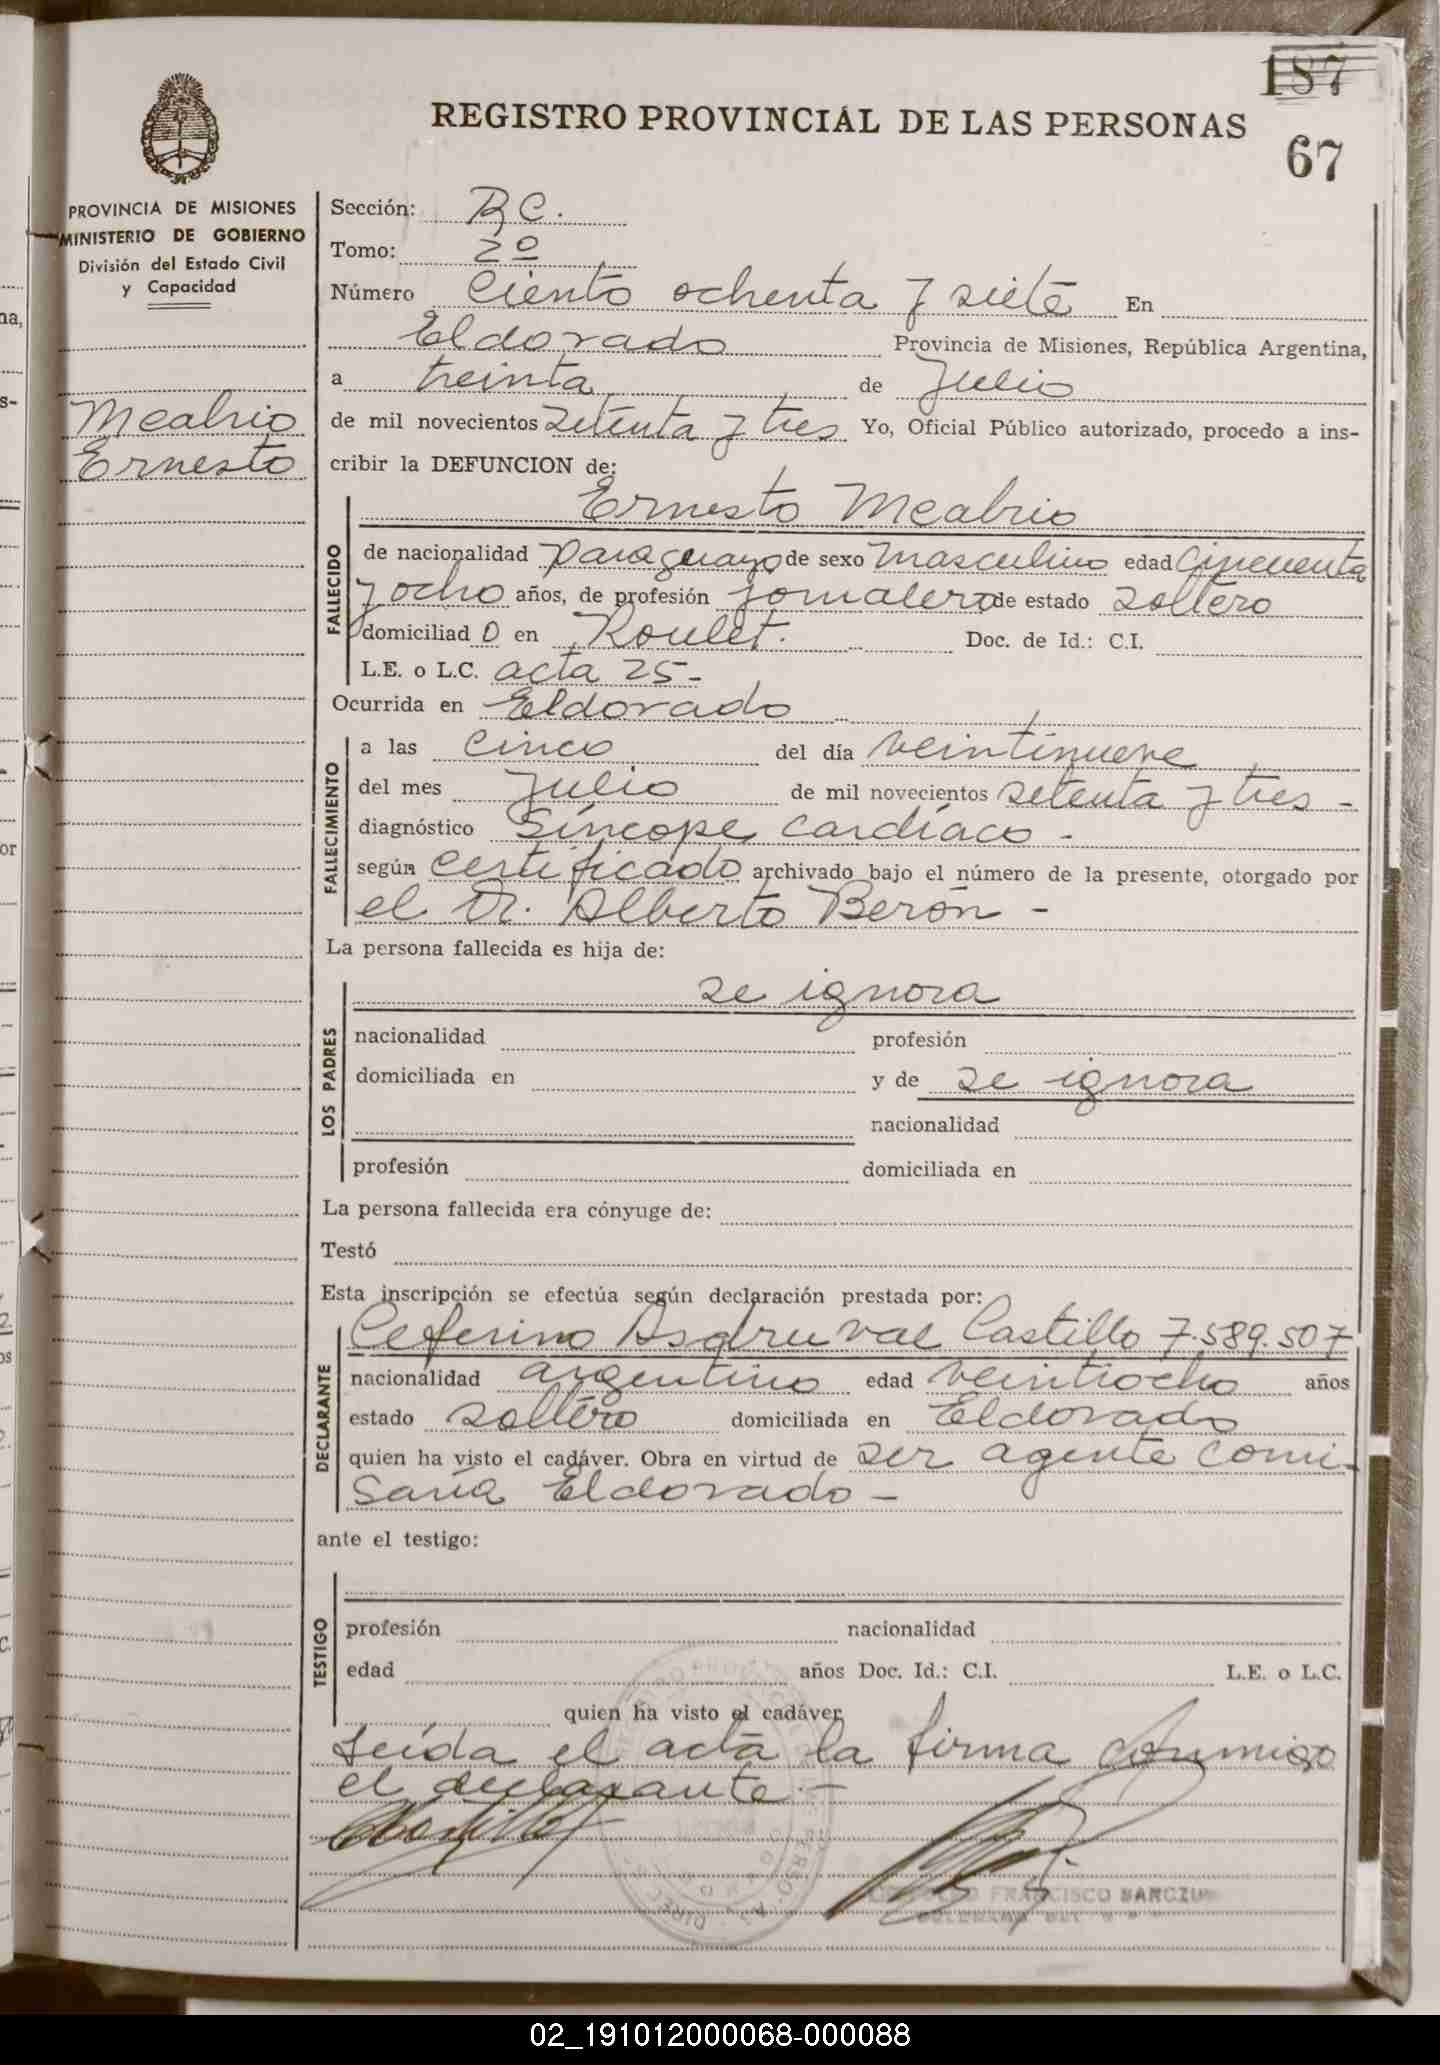 187
REGISTRO PROVINCIAL DE LAS PERSONAS
67
PROVINCIA DE MISIONES
MINISTERIO DE GOBIERNO
División del Estado Civil
y Capacidad
Mealrio
Ernesto
Sección: R C.
Tomo: 2º
Número Ciento ochenta y siete En
Eldorado Provincia de Misiones, República Argentina,
a treinta de Julio
de mil novecientos setenta y tres Yo, Oficial Público autorizado, procedo a ins-
cribir la DEFUNCION de:
Ernesto Mealrio
FALLECIDO
de nacionalidad paraguayo de sexo masculino edad cincuenta
y ocho años, de profesión jornalero de estado soltero
domiciliad o en Roulet. Doc. de Id.: C.I.
L.E. o L.C. acta 25-
Ocurrida en Eldorado
FALLECIMIENTO
a las cinco del día veintinueve
del mes Julio de mil novecientos setenta y tres -
diagnóstico Síncope cardíaco -
según certificado archivado bajo el número de la presente, otorgado por
el Dr. Alberto Berón -
La persona fallecida es hija de:
LOS PADRES
se ignora
nacionalidad profesión
domiciliada en y de se ignora
nacionalidad
profesión domiciliada en
La persona fallecida era cónyuge de:
Testó
Esta inscripción se efectúa según declaración prestada por:
DECLARANTE
Ceferino Asdruval Castillo 7.589.507
nacionalidad argentino edad veintiocho años
estado soltero domiciliada en Eldorado
quien ha visto el cadáver. Obra en virtud de ser agente comi-
saría Eldorado -
ante el testigo:
TESTIGO
profesión nacionalidad
edad años Doc. Id.: C.I. L.E. o L.C.
quien ha visto el cadáver
Leída el acta la firma conmigo
el declarante.-
FRANCISCO
02_191012000068-000088